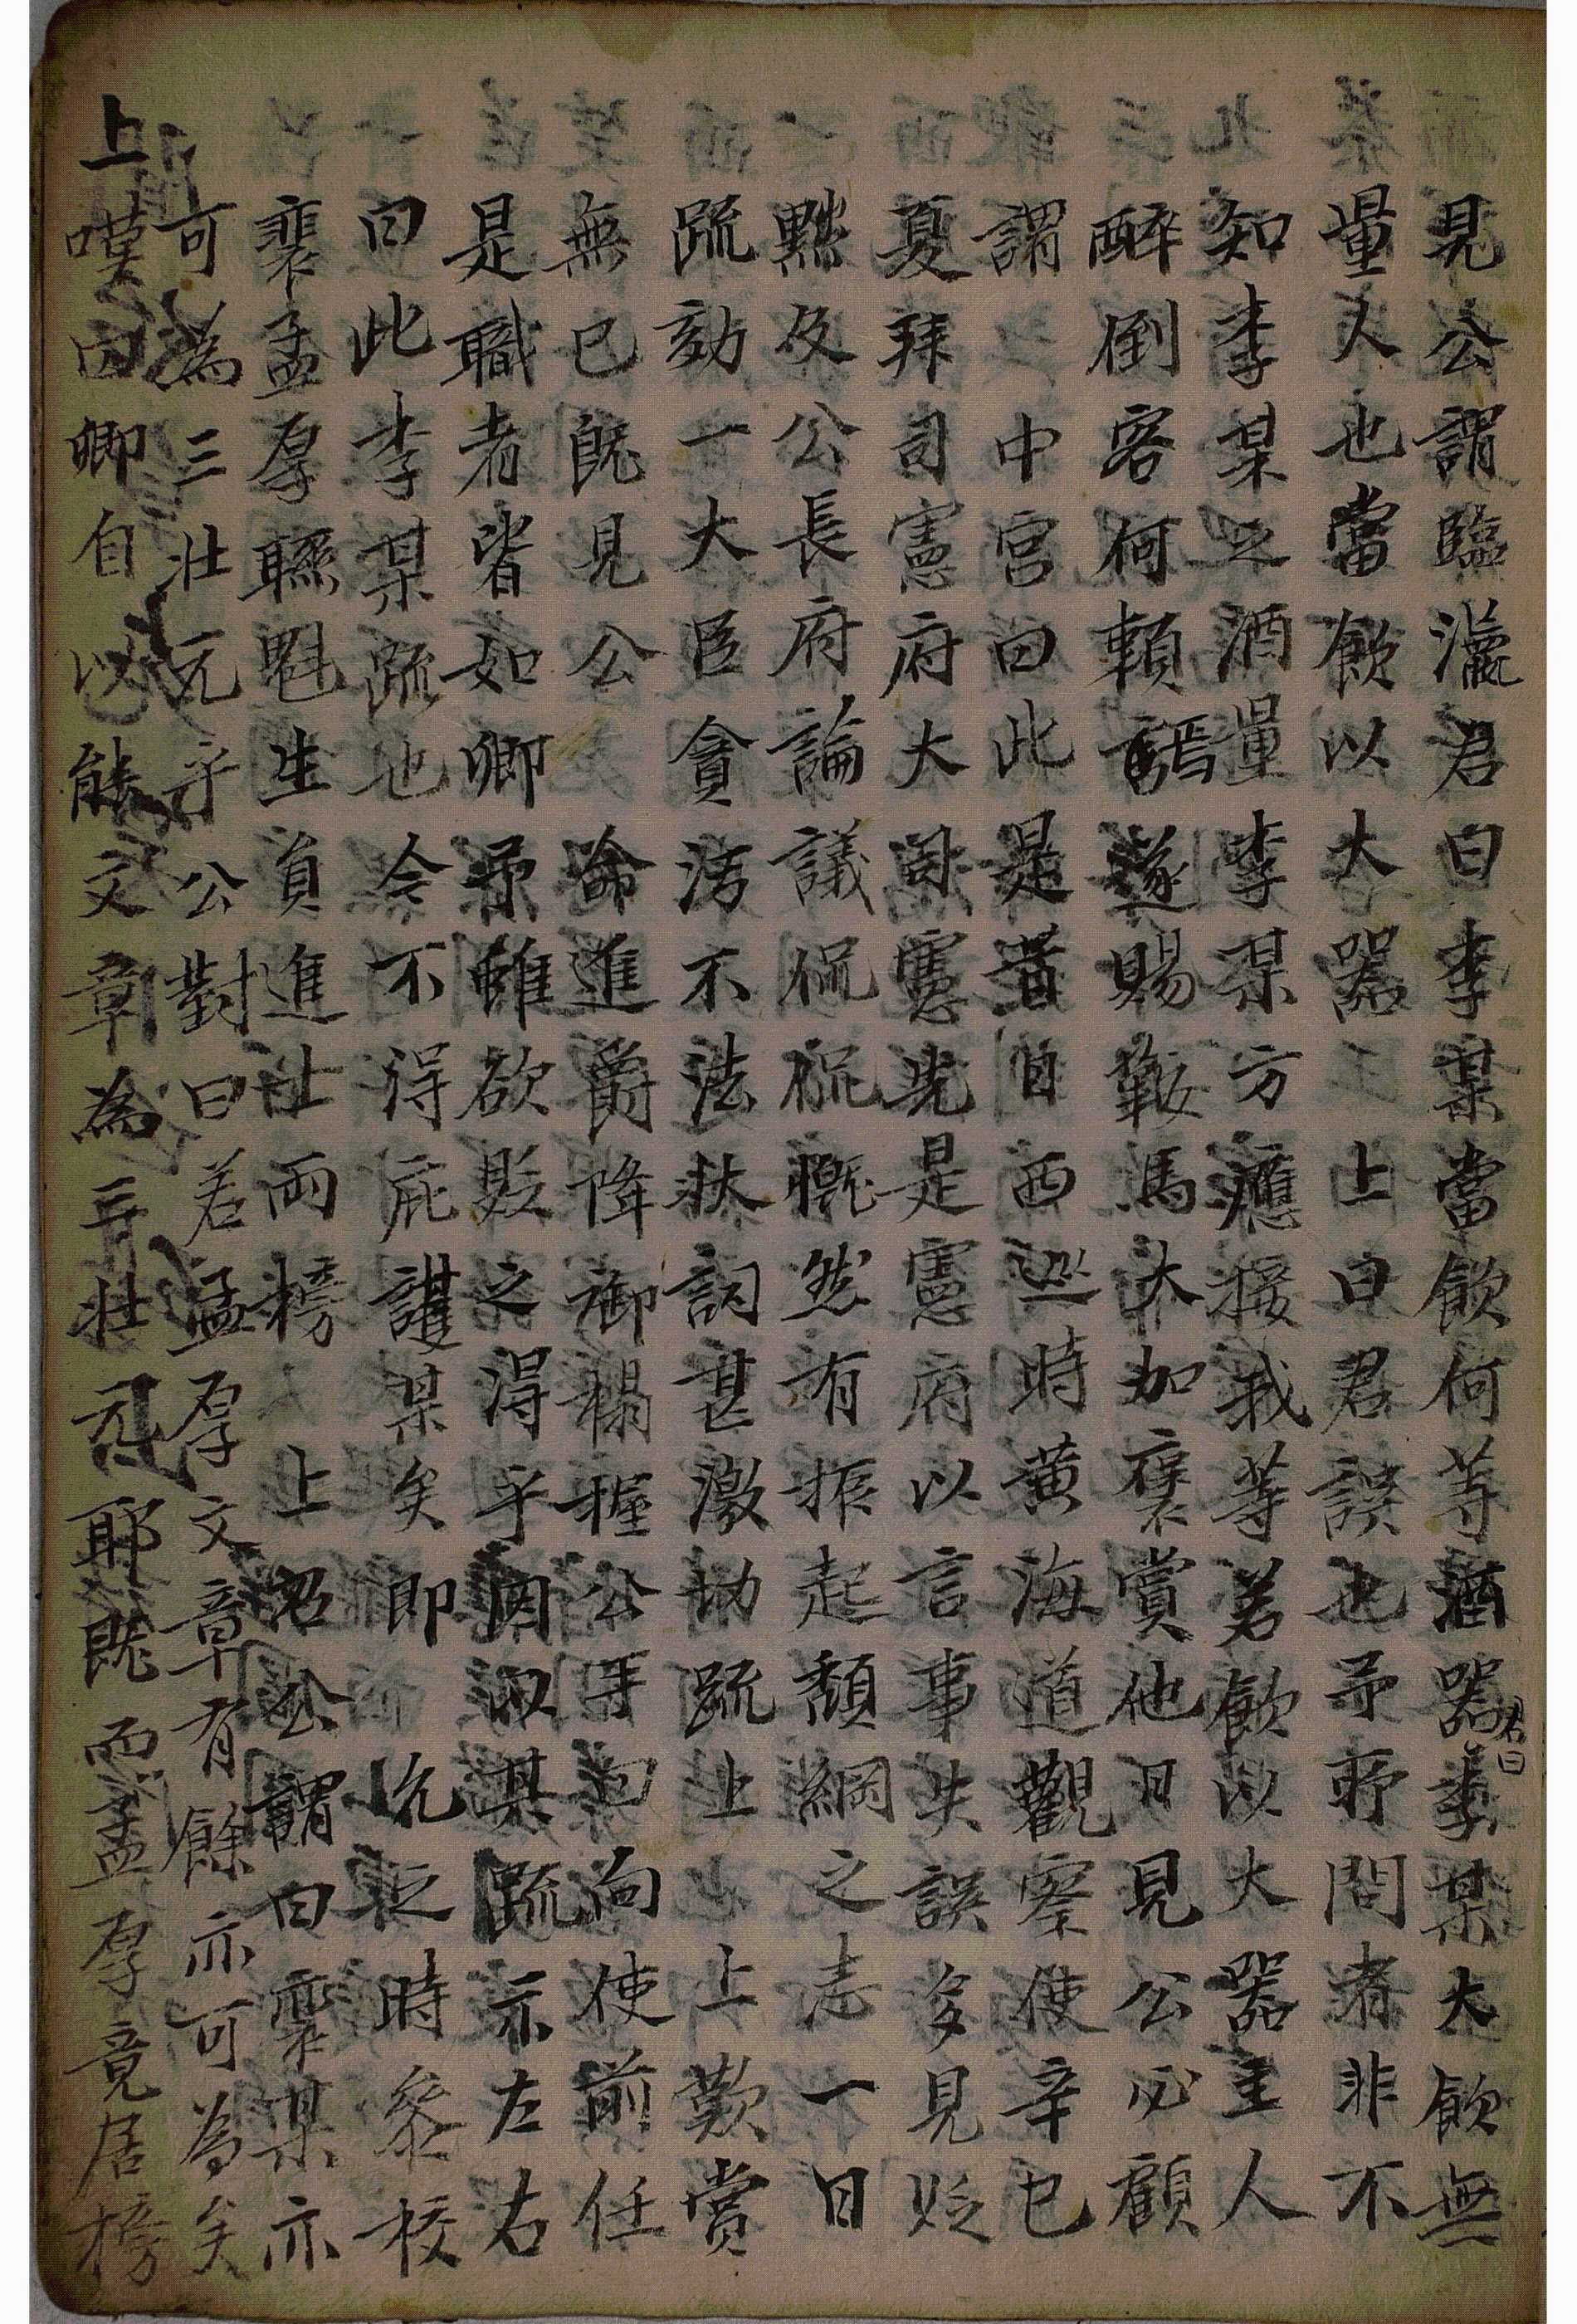 見公謂臨瀛君曰李某當飲何等酒器君曰李某大飲無
量人也當飲以大器 上曰君誤也予所問者非不
知李某之酒量李某方應接我等若飲以大器主人
醉倒客何賴焉遂賜鞍馬大加褒賞他日見公必顧
謂 中宮曰此是昔日西巡時黃海道觀察使辛巳
夏拜司憲府大司憲先是憲府以言事失誤多見貶
黜及公長府論議侃侃慨然有振起頹綱之志一日
疏劾一大臣貪汚不法狀詞甚激切疏上 上歎賞
無已旣見公 命進爵降御榻握公手曰向使前任
是職者皆如卿予雖欲貶之得乎因以其疏示左右
曰此李某疏也今不得庇護某矣卽 允之時參校
裴孟厚聯魁生員進士兩榜 上召公謂曰裴某亦
可爲三壯元乎公對曰若孟厚文章有餘亦可爲矣
上嘆曰卿自以能文章爲三壯元耶旣而孟厚竟居榜